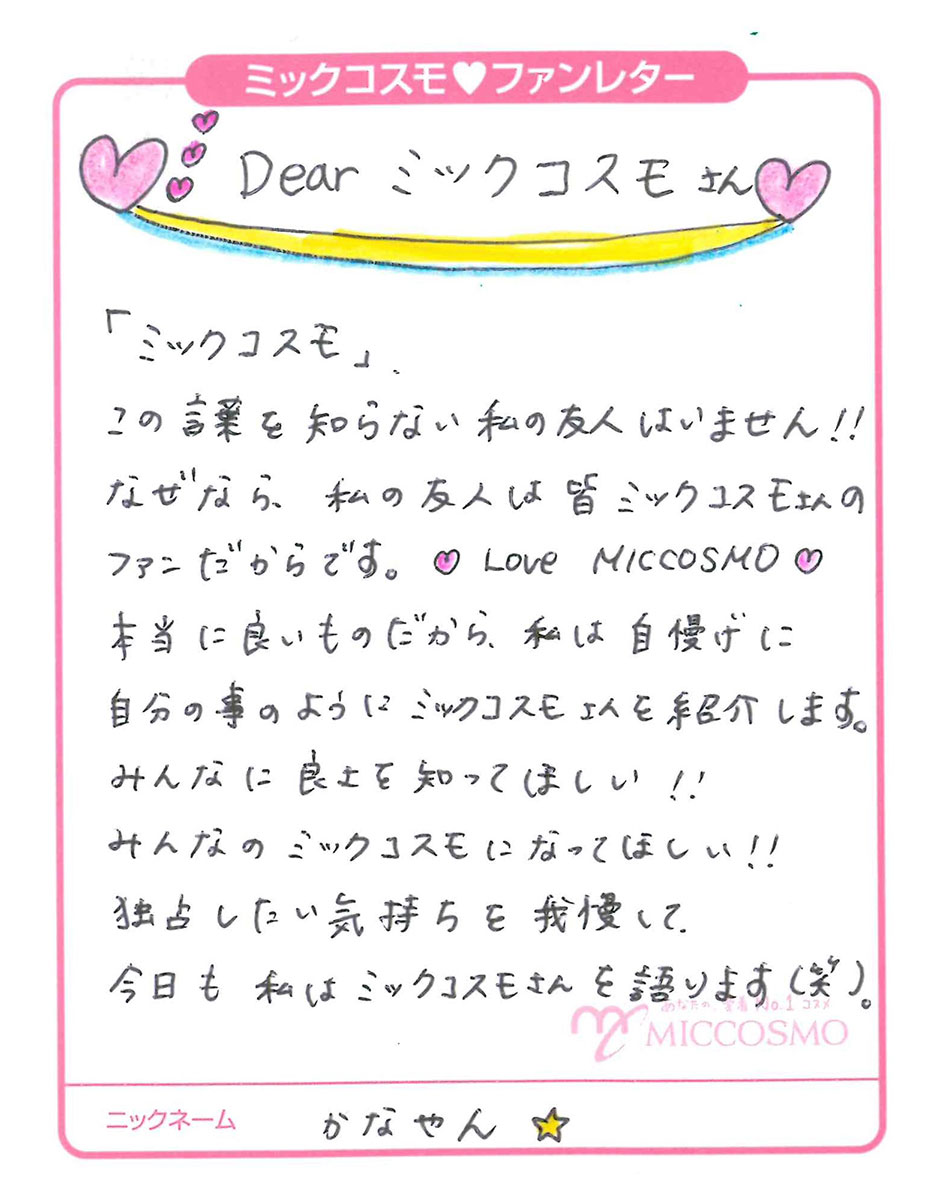 ミックコスモ♥ファンレター
Dear ミックコスモ さん
「ミックコスモ」.
この言葉を知らない私の友人はいません!!
なぜなら、私の友人は皆ミックコスモさんの
ファンだからです。♥ Love MICCOSMO ♥
本当に良いものだから、私は自慢げに
自分の事のようにミックコスモさんを紹介します。
みんなに良さを知ってほしい!!
みんなのミックコスモになってほしい!!
独占したい気持ちを我慢して、
今日も私はミックコスモさんを語ります(笑)。
あなたの、愛着No.1コスメ
MICCOSMO
ニックネーム かなやん ★